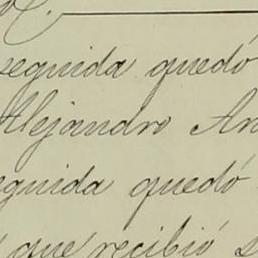 seguida quedó
Alejandro An
eguida quedó
que recibió